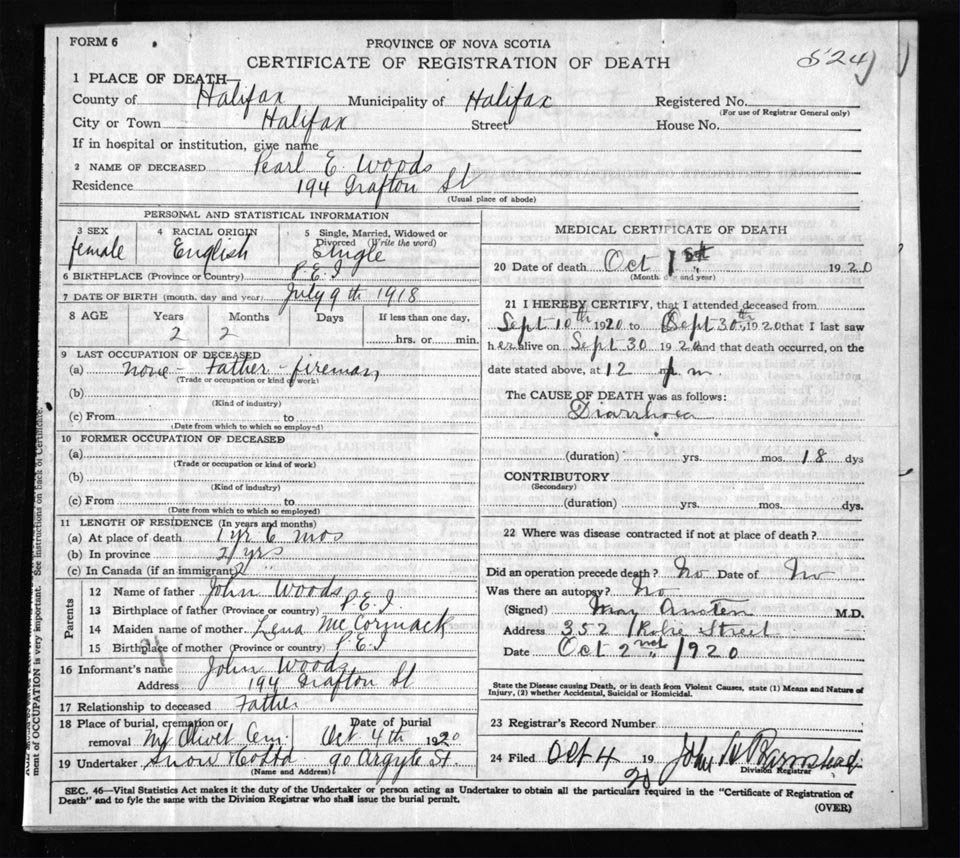 FORM 6
PROVINCE OF NOVA SCOTIA
CERTIFICATE OF REGISTRATION OF DEATH
524
1 PLACE OF DEATH—
County of Halifax Municipality of Halifax Registered No.
(For use of Registrar General only)
City or Town Halifax Street House No.
If in hospital or institution, give name
2 NAME OF DECEASED Pearl E. Woods
Residence 194 Grafton St
(Usual place of abode)
PERSONAL AND STATISTICAL INFORMATION
3 SEX 4 RACIAL ORIGIN 5 Single, Married, Widowed or Divorced (Write the word)
female English Single
6 BIRTHPLACE (Province or Country) P.E.I
7 DATE OF BIRTH (month, day and year) July 9th 1918
8 AGE Years Months Days If less than one day,
2 2 hrs. or min.
9 LAST OCCUPATION OF DECEASED
(a) none - Father - fireman
(Trade or occupation or kind of work)
(b)
(Kind of industry)
(c) From to
(Date from which to which so employed)
10 FORMER OCCUPATION OF DECEASED
(a)
(Trade or occupation or kind of work)
(b)
(Kind of industry)
(c) From to
(Date from which to which so employed)
11 LENGTH OF RESIDENCE (In years and months)
(a) At place of death 1 yr 6 mos
(b) In province 2 yrs
(c) In Canada (if an immigrant)
Parents
12 Name of father John Woods
13 Birthplace of father (Province or country) P.E.I.
14 Maiden name of mother Lena McCormack
15 Birthplace of mother (Province or country) P.E.I
16 Informant's name John Woods
Address 194 Grafton St
17 Relationship to deceased Father
18 Place of burial, cremation or removal Mt Olivet Cem. Date of burial Oct 4th 1920
19 Undertaker Snow 90 Argyle St.
(Name and Address)
MEDICAL CERTIFICATE OF DEATH
20 Date of death Oct 1st 1920
(Month day and year)
21 I HEREBY CERTIFY, that I attended deceased from
Sept 10th 1920 to Sept 30th, 1920 that I last saw
her alive on Sept 30 1920 and that death occurred, on the
date stated above, at 12 p.m.
The CAUSE OF DEATH was as follows:
Diarrhoea
(duration) yrs. mos. 18 dys
CONTRIBUTORY
(Secondary)
(duration) yrs. mos. dys.
22 Where was disease contracted if not at place of death?
Did an operation precede death? No Date of No
Was there an autopsy? No
(Signed) May Austen M.D.
Address 352 Robie Street
Date Oct 2nd 1920
State the Disease causing Death, or in death from Violent Causes, state (1) Means and Nature of
Injury, (2) whether Accidental, Suicidal or Homicidal.
23 Registrar's Record Number
24 Filed Oct 4 1920 John
Division Registrar
SEC. 46—Vital Statistics Act makes it the duty of the Undertaker or person acting as Undertaker to obtain all the particulars required in the "Certificate of Registration of
Death" and to fyle the same with the Division Registrar who shall issue the burial permit.
(OVER)
ment of OCCUPATION is very important. See instructions on back of Certificate.